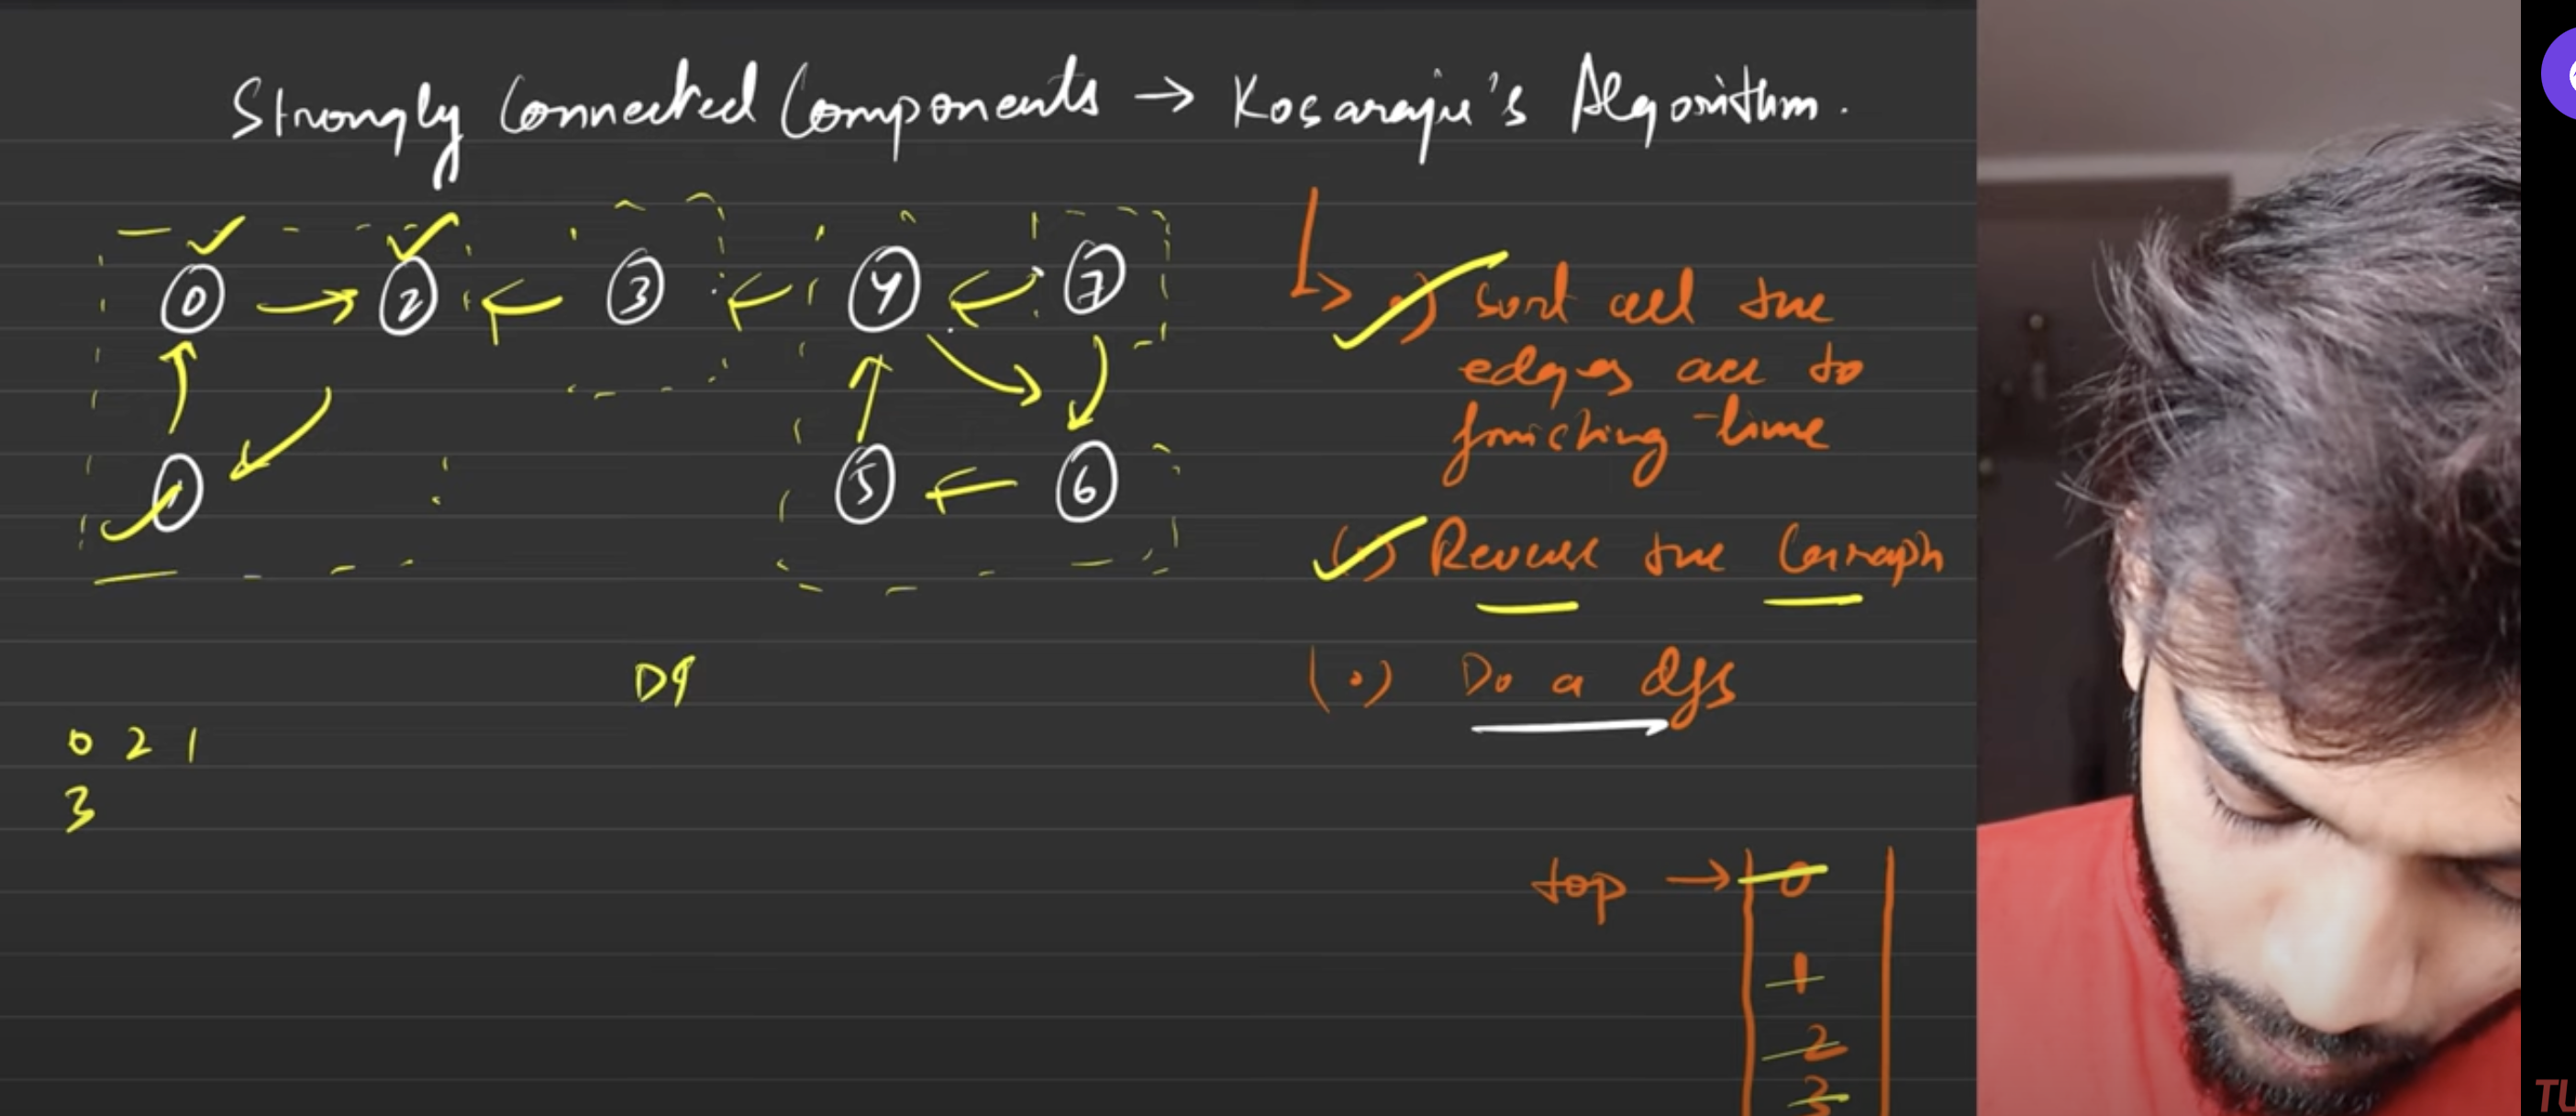 Strongly Connected Components → Kosaraju's Algorithm.
0 2 3 4 7
1 5 6
(•) Sort all the
edges acc to
finishing time
(•) Reverse the Graph
(•) Do a dfs
0 2 1
3
top → 0
1
2
3